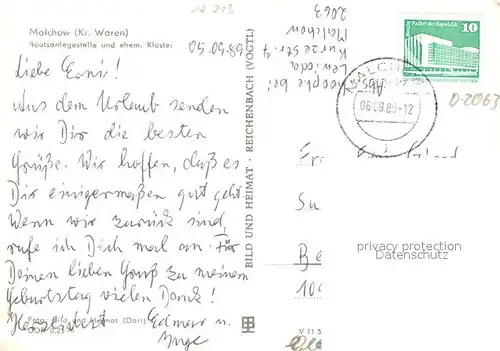 12 213
Malchow (Kr. Waren)
Bootsanlegestelle und ehem. Kloster
Liebe Erni!
Aus dem Urlaub senden
wir Dir die besten
Grüße. Wir hoffen, daß es
Dir einigermaßen gut geht.
Wenn wir zurück sind,
rufe ich Dich mal an. Für
Deinen lieben Gruß zu meinem
Geburtstag vielen Dank!
Herzlichst Edmar u.
Inge
Foto: Bild und Heimat (Darr)
DDR 0,25 M
BILD UND HEIMAT · REICHENBACH (VOGTL)
bei
Kurze Str. 7
Malchow
2063
Palast der Republik
10
DDR
MALCHOW
06.09.89-12
O-2063
Su
Be
10
privacy protection
Datenschutz
V 11 5